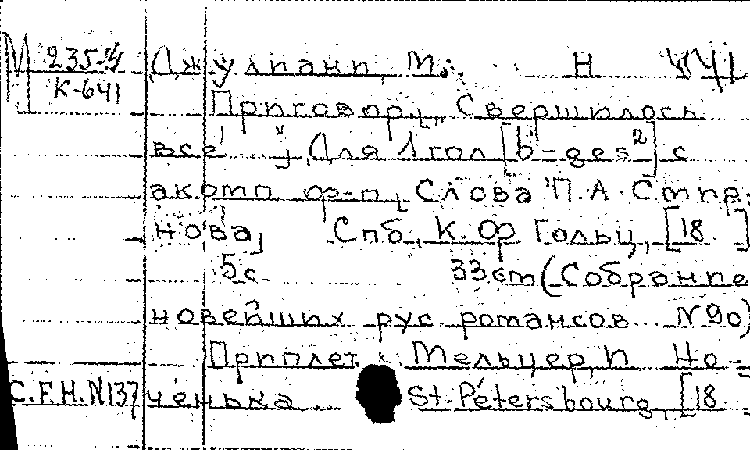 М 235-4 Джулиани, М. Н
К-641 Приговор, Свершилось
все", Для 1 гол [b-ges²] с
акомп ф-п, Слова П.А. Спир-
нова, Спб, К. Ф Гольц, [18 ]
5с 33 cm (Собрание
новейших рус романсов N 90)
Приплет: Мельцер, П Но-
С.F.H. N137 ченька St-Pétersbourg, [18